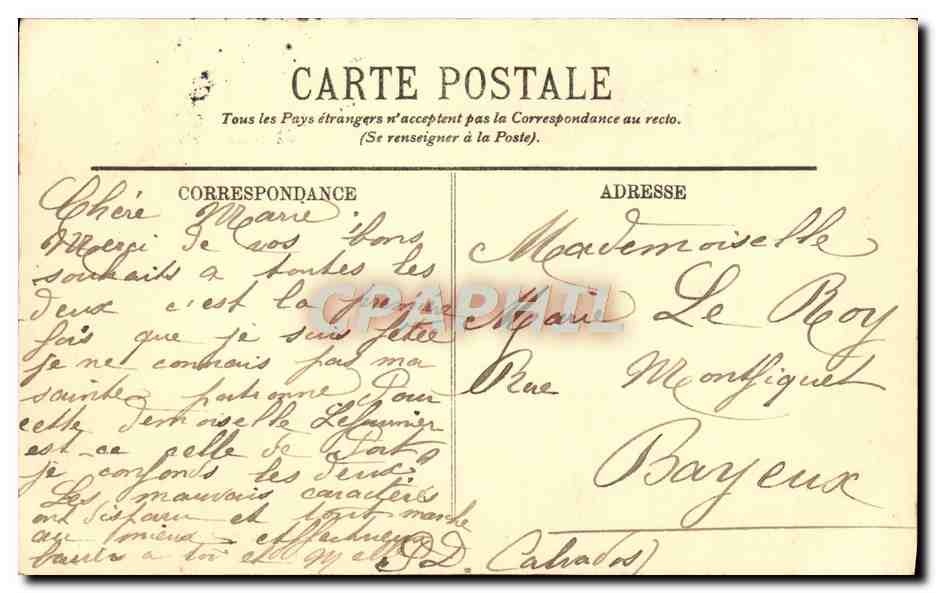 CARTE POSTALE
Tous les Pays étrangers n'acceptent pas la Correspondance au recto.
(Se renseigner à la Poste).
CORRESPONDANCE
Chére Marie
Merci de vos bons
souhaits a toutes les
deux c'est la première
fois que je suis fêtée
je ne connais pas ma
sainte patronne Pour
cette demoiselle Lefaunier
est-ce celle de Port,
je confonds les deux
Les mauvais caractères
ont disparu et tout marche
au mieux affectueux
baiser a toi et Melle
D.
ADRESSE
Mademoiselle
Marie Le Roy
Rue Montfiquet
Bayeux
Calvados
CPAPHIL